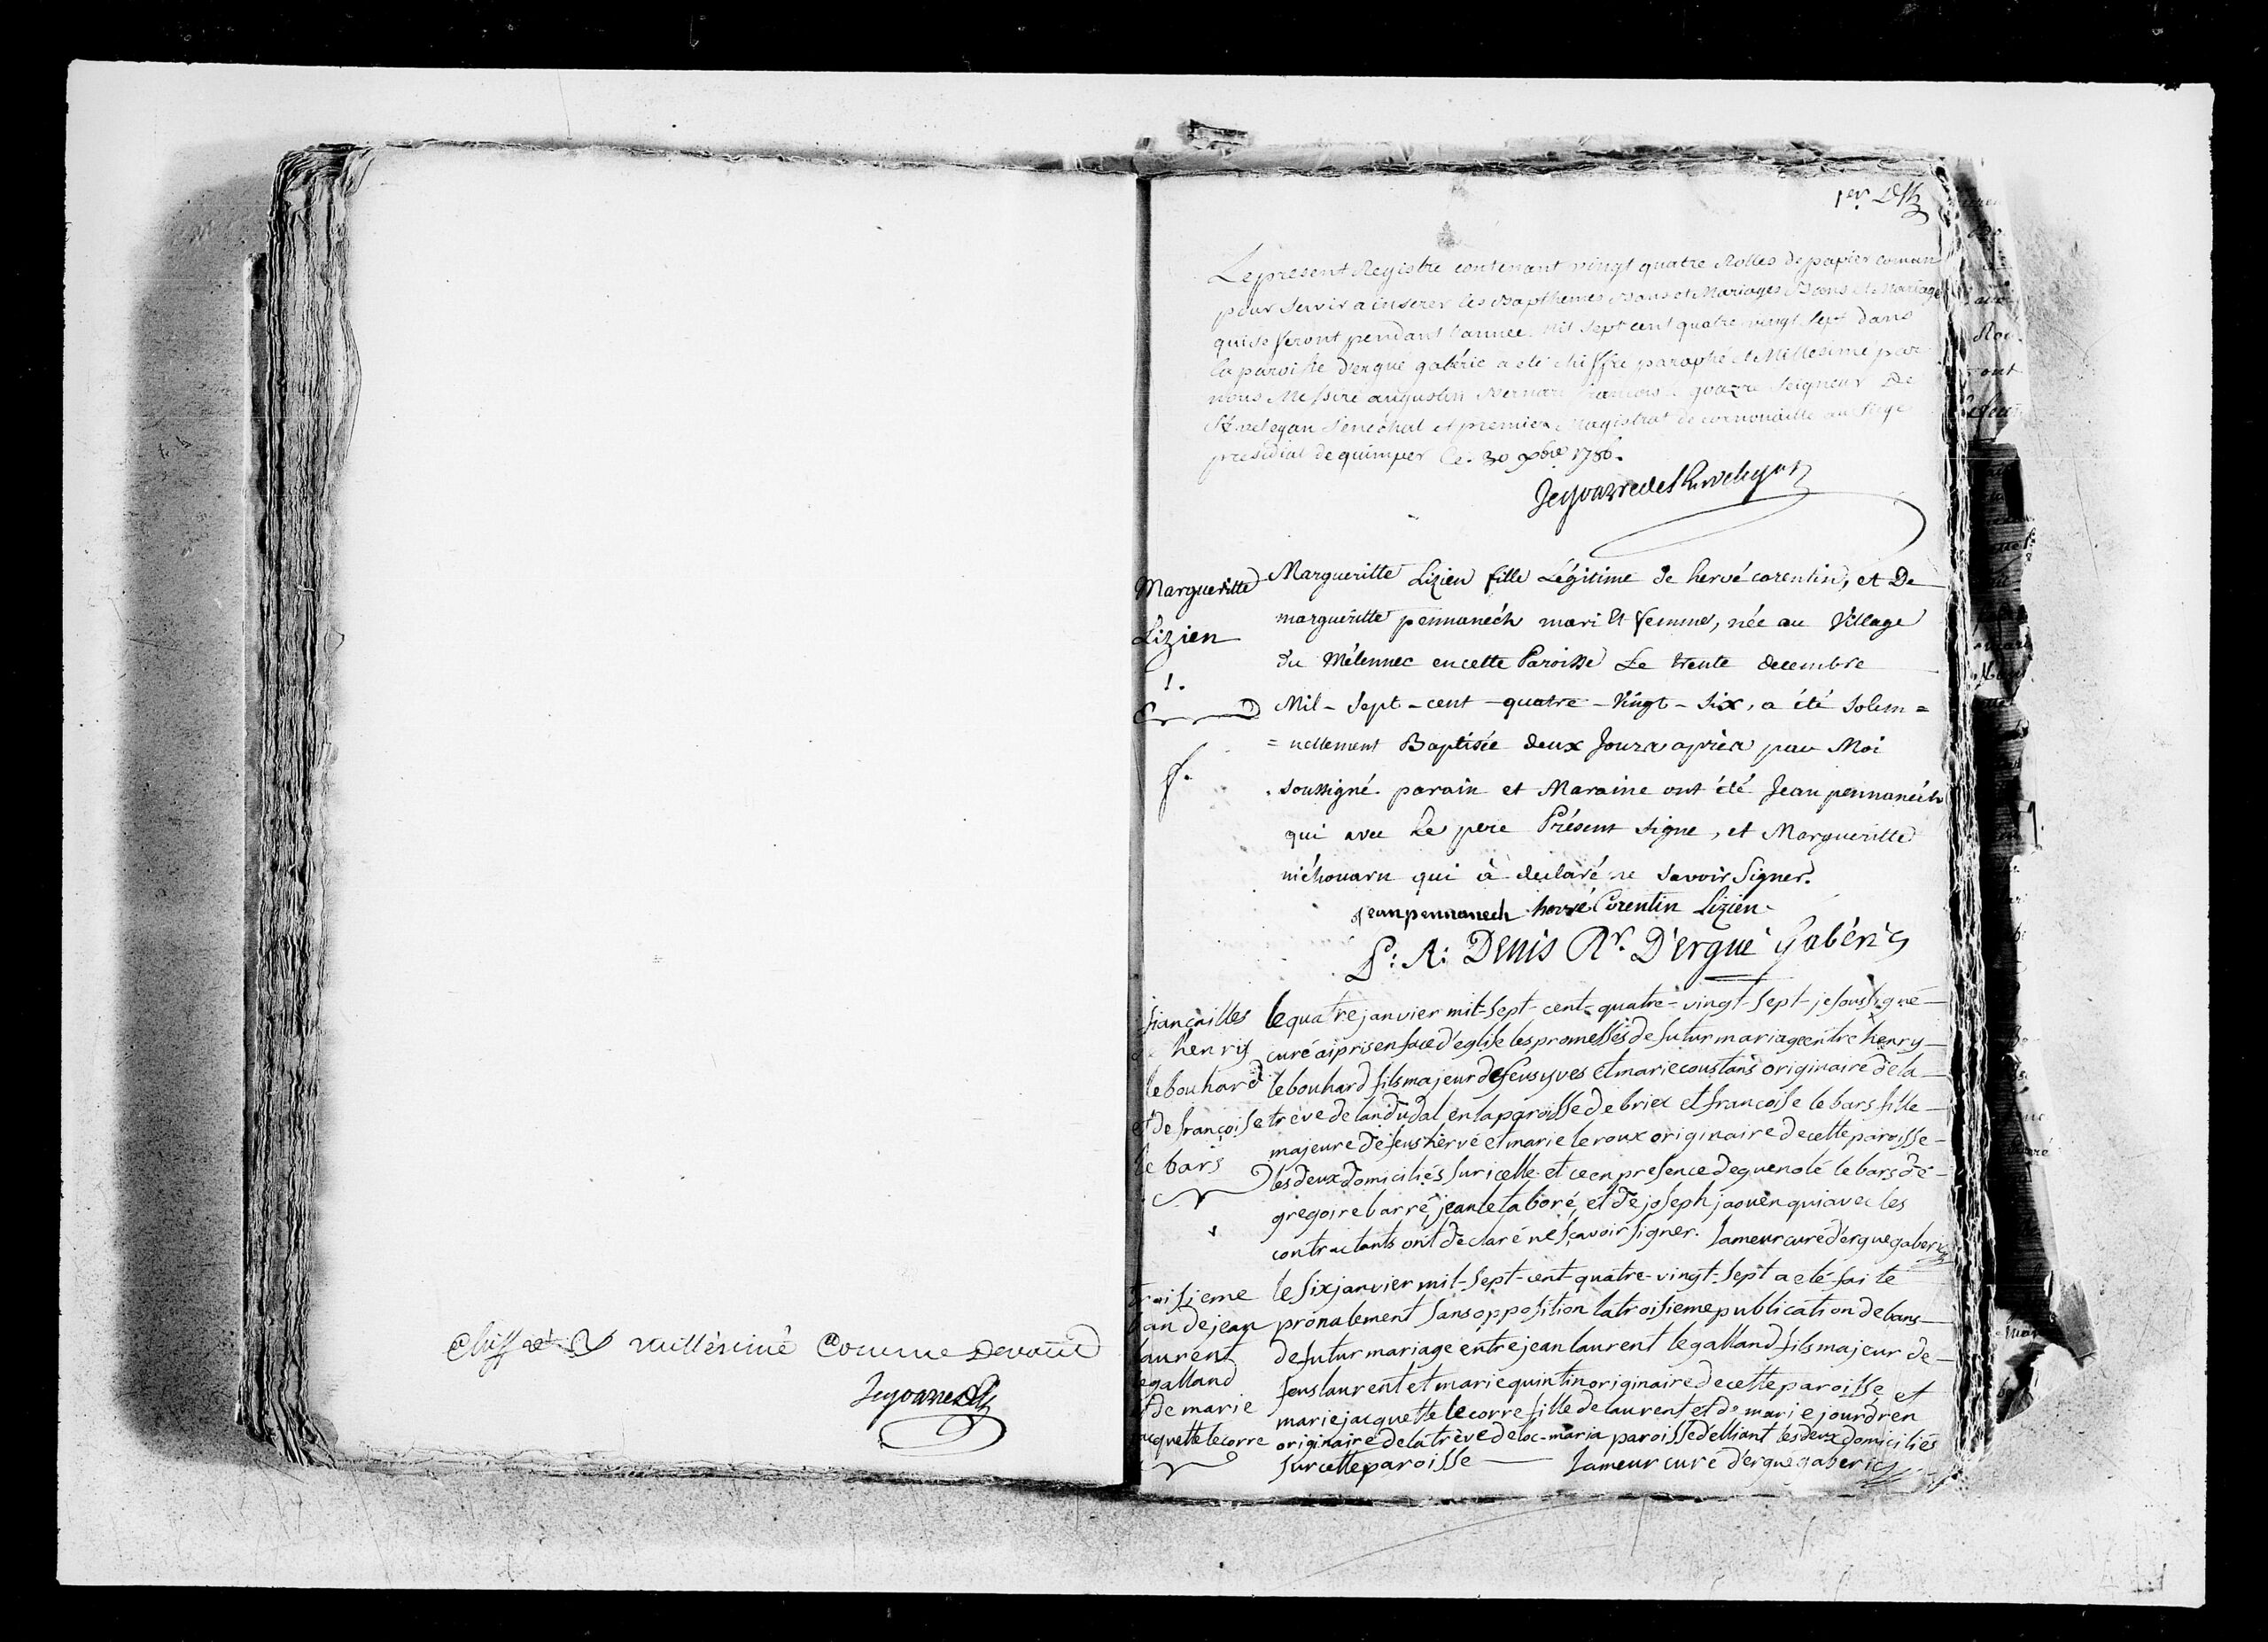 Chiffré et millésimé Comme Devant
1er
Le present Registre contenant vingt quatre Rolles de papier comun
pour servir a inserer les Bapthemes Bans et Mariages
qui se feront pendant l'annee mil sept cent quatre vingt sept dans
la paroisse d'ergué gabéric a eté chiffré paraphé et Millesimé par
nous Messire augustin Bernard francois Le goazre Seigneur De
Kervelegan Senechal et premier Magistrat de cornouaille au Siege
presidial de quimper Ce. 30 xbre 1786.
Legoazre de Kervelegan
Margueritte
Lizien
1.
Margueritte Lizien fille Légitime de hervé corentin, et De
margueritte pennanéch mari et femme, née au Village
du Mélennec en cette Paroisse Le trente decembre
Mil - Sept - cent - quatre - Vingt - Six, a été solem =
= nellement Baptisée deux Jours après par Moi
soussigné. parain et Maraine ont été Jean pennanéch
qui avec Le pere Présent signe, et Margueritte
niéhouarn qui à declaré ne Savoir Signer.
jean pennanech hervé Corentin Lizien
F: A: Denis Rr. D'ergué Gabéric
fiançailles
de henry
le bouhard
et de françoise
le bars
le quatre janvier mil-sept-cent-quatre-vingt-sept-je soussigné
curé ai pris en face d'eglise les promesses de futur mariage entre henry
le bouhard fils majeur de feus yves et marie coustans originaire de la
trève de landudal en la paroisse de briec et francoise le bars fille
majeure de feus hervé et marie le roux originaire de cette paroisse
les deux domiciliés sur icelle et ce en presence de guenolé le bars de
gregoire barré, jean le taboré, et de joseph jaouen qui avec les
contractants ont declaré ne sçavoir signer. Lameur curé d'ergue gaberic
troisieme
ban de jean
laurent
legalland
et de marie
jacquette le corre
le six janvier mil-sept-cent-quatre-vingt-sept a eté faite
pronalement sans opposition la troisieme publication de bans
de futur mariage entre jean laurent legalland fils majeur de
feus laurent et marie quintin originaire de cette paroisse et
marie jacquette le corre fille de laurent et de marie jourdren
originaire de la trève de loc-maria paroisse d'elliant les deux domiciliés
sur cette paroisse Lameur curé d'ergue gaberic